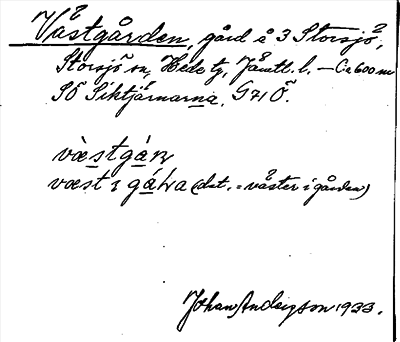 Västgården, gård å 3 Storsjö,
Storsjö sn, Hede tg, Jämtl. l. – Ca 600 m
SÖ Siktjärnarna, G71 Ö.
væstgáɳ
væst i gáɽa (dat. = väster i gården)
Johan Anderzson 1933.